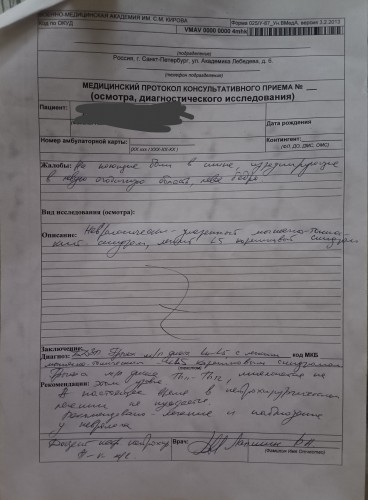 ВОЕННО-МЕДИЦИНСКАЯ АКАДЕМИЯ ИМ. С.М. КИРОВА
Код по ОКУД
Форма 025/У-87_Ун.ВМедА, версия 3.2.2013
VMAV 0000 0000 4mhs
(подразделение)
Россия, г. Санкт-Петербург, ул. Академика Лебедева, д. 6.
(телефон подразделения)
МЕДИЦИНСКИЙ ПРОТОКОЛ КОНСУЛЬТАТИВНОГО ПРИЕМА №
(осмотра, диагностического исследования)
Пациент:
Дата рождения
Номер амбулаторной карты:
Контингент:
(ХХ ххх / ХХХ-ХХ-ХХ )
(в/сл, ДО, ДМС, ОМС)
Жалобы: на ноющие боли в спине, иррадиирующие
в левую ягодичную область, левое бедро
Вид исследования (осмотра):
Описание: Неврологически - умеренный мышечно-тонический
синдром, легкий L5 корешковый синдром
Заключение:
Диагноз: диска L4-L5 с легким код МКБ
L5 корешковым синдромом
диска Th11-Th12
Рекомендации: этом уровне
В настоящее время в нейрохирургическом
лечении не нуждается
Рекомендовано - лечение и наблюдение
у невролога
Врач:
(Фамилия Имя Отчество)